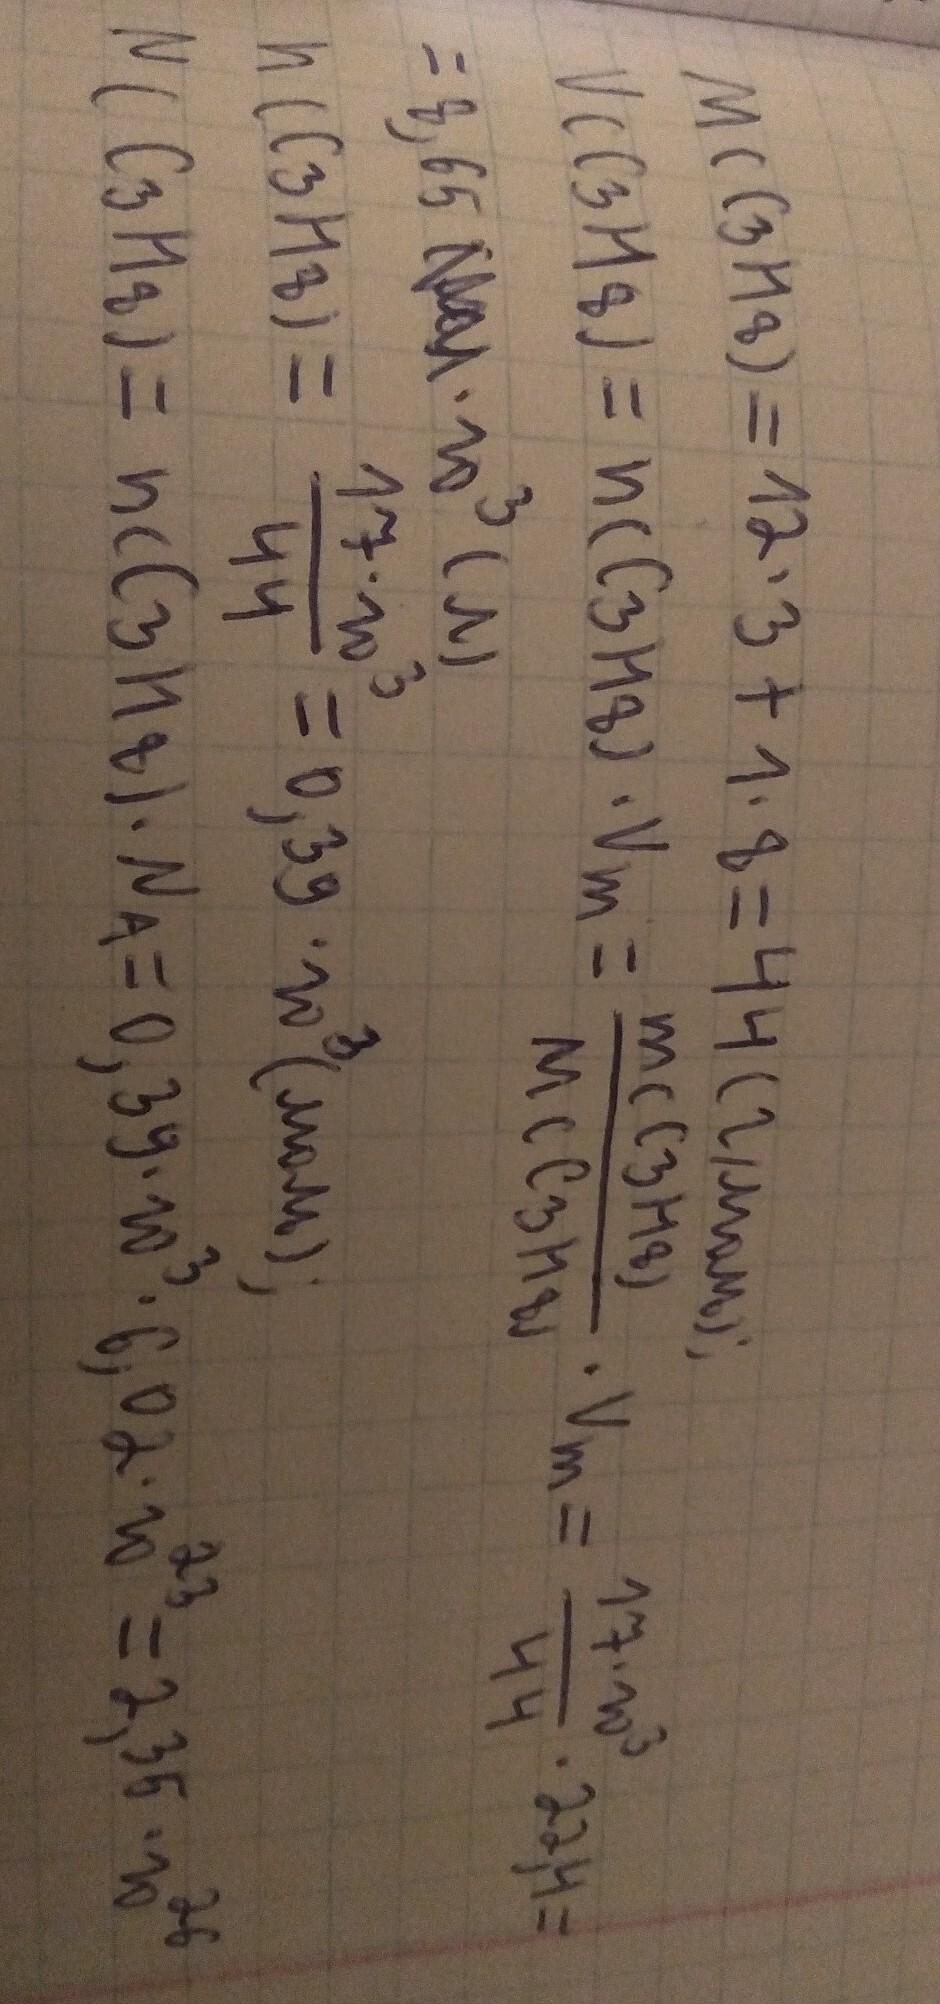 M(C3H8) = 12·3 + 1·8 = 44 (г/моль);
V(C3H8) = n(C3H8)·Vm = m(C3H8)/M(C3H8) · Vm = 17·10³/44 · 22,4 =
= 8,65 · 10³ (л)
n(C3H8) = 17·10³/44 = 0,39·10³ (моль);
N(C3H8) = n(C3H8)·NA = 0,39·10³·6,02·10²³ = 2,35·10²⁶